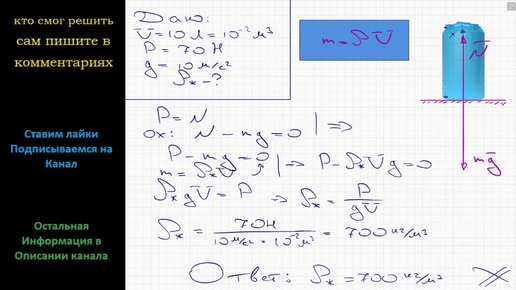 кто смог решить
сам пишите в
комментариях
Ставим лайки
Подписываемся на
Канал
Остальная
Информация в
Описании канала
Дано:
V = 10 л = 10⁻² м³
P = 70 Н
g = 10 м/с²
ρж - ?
m = ρ V
P = N
ox: N - mg = 0 | ⇒
P - mg = 0
m = ρж V | ⇒ P - ρж V g = 0
ρж g V = P ⇒ ρж = P / gV
ρж = 70 Н / 10 м/с² · 10⁻² м³ = 700 кг/м³
Ответ: ρж = 700 кг/м³
x
N
mg